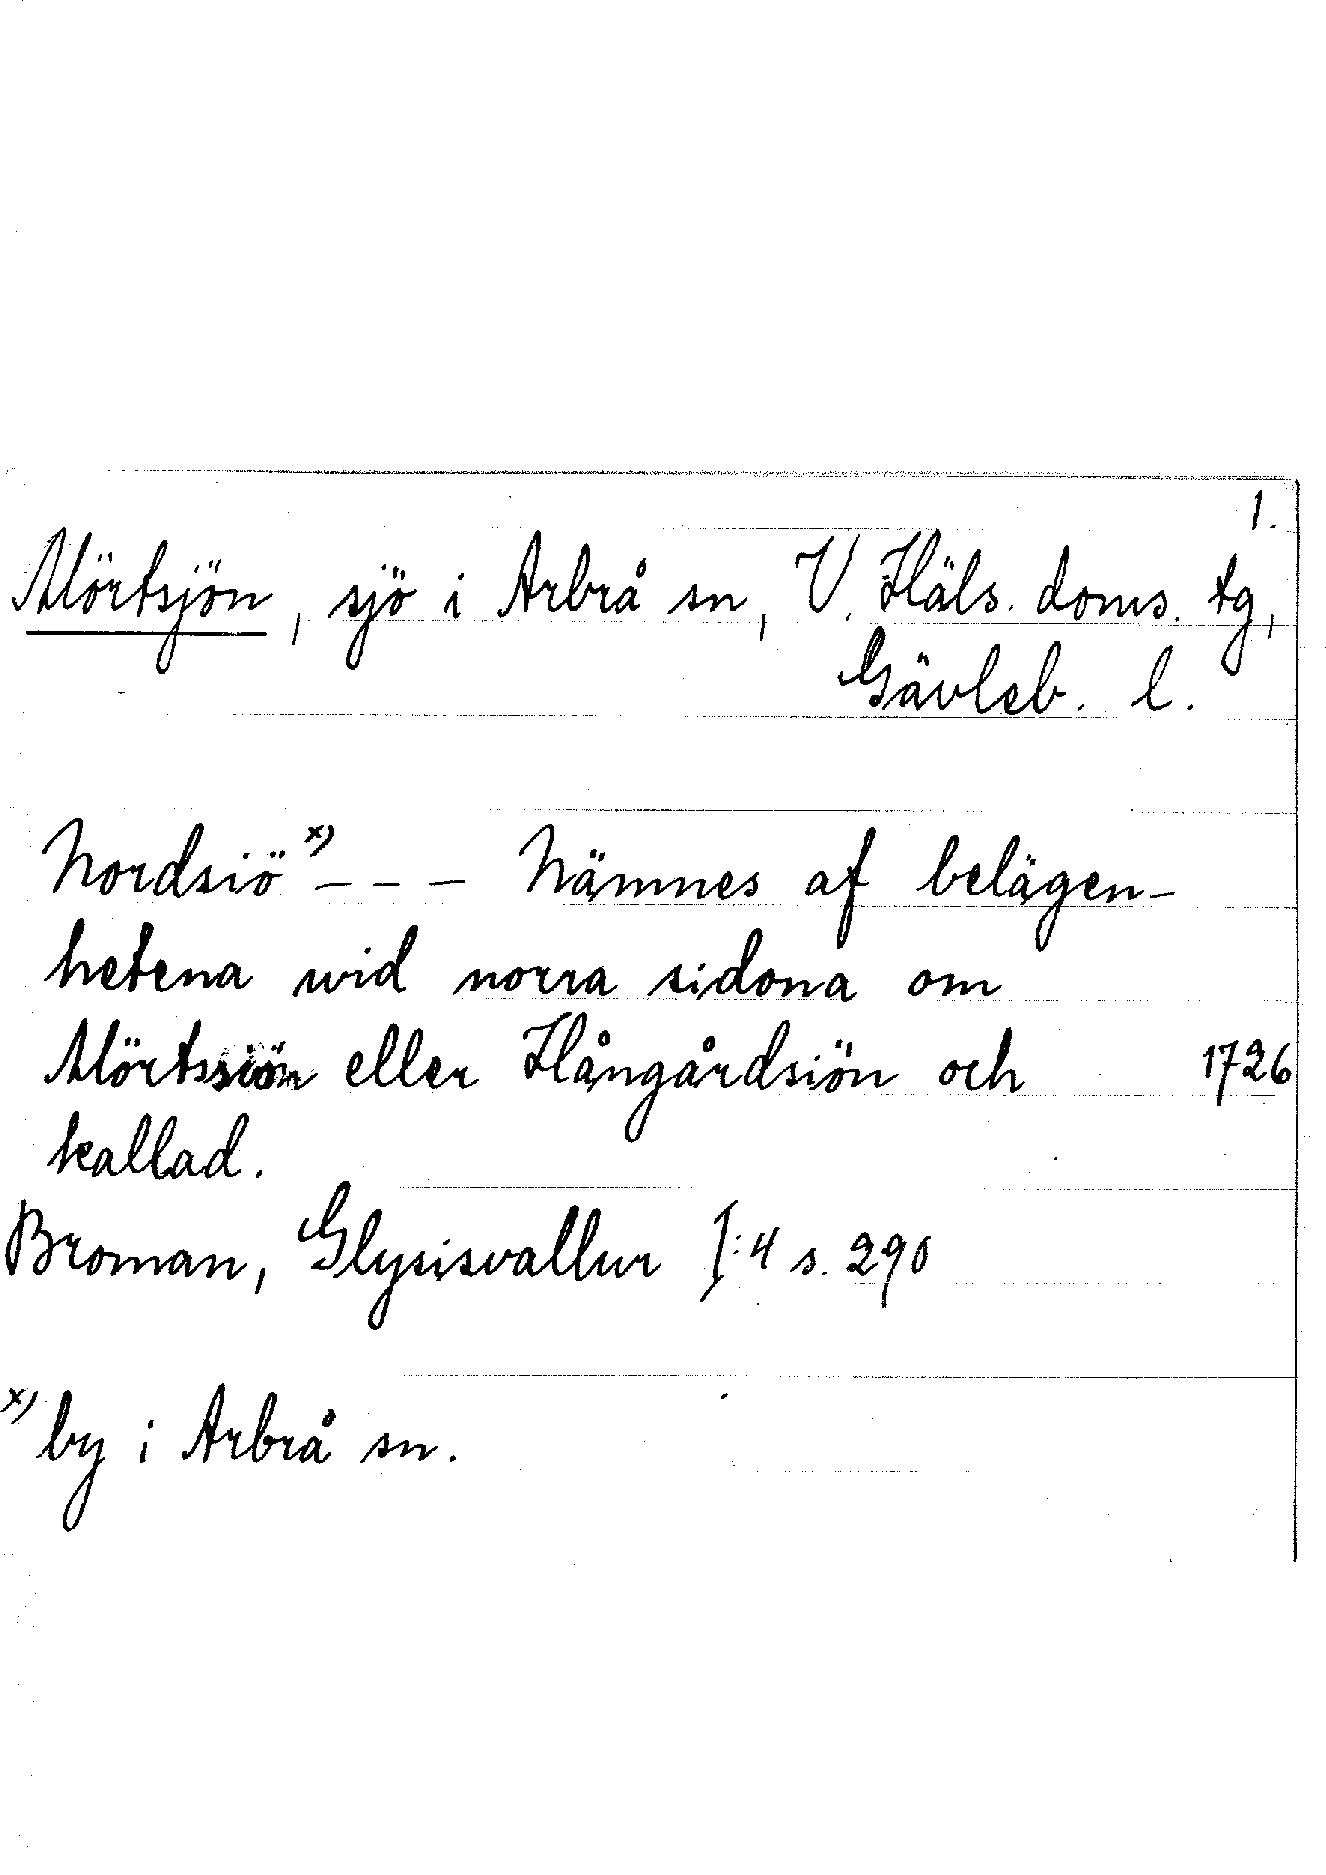 1.
Mörtsjön, sjö i Arbrå sn, V. Häls. doms. tg,
Gävleb. l.
Nordsiö x) - - - Nämnes af belägen-
hetena wid norra sidona om
Mörtssiön eller Hångårdsiön och 1726
kallad.
Broman, Glysisvallur I:4 s. 290
x) by i Arbrå sn.